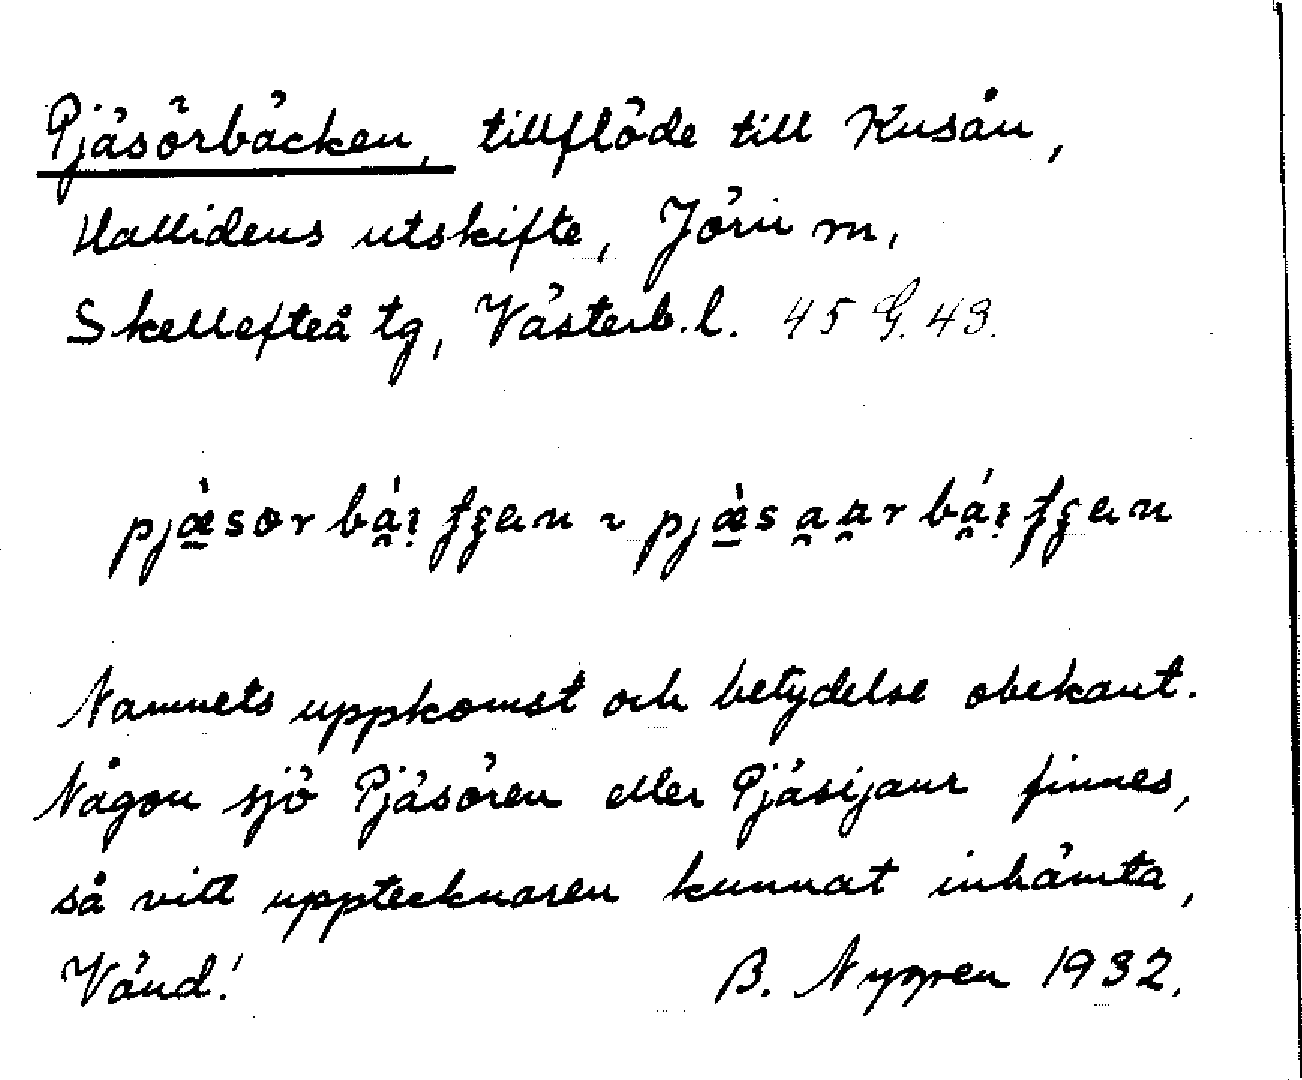 Pjäsörbäcken, tillflöde till Kusån,
Hallidens utskifte, Jörn m,
Skellefteå tg, Västerb. l. 45 G. 43.
Namnets uppkomst och betydelse obekant.
Någon sjö Pjäsören eller Pjäsijaur finnes,
så vitt upptecknaren kunnat inhämta,
Vänd! B. Nygren 1932.